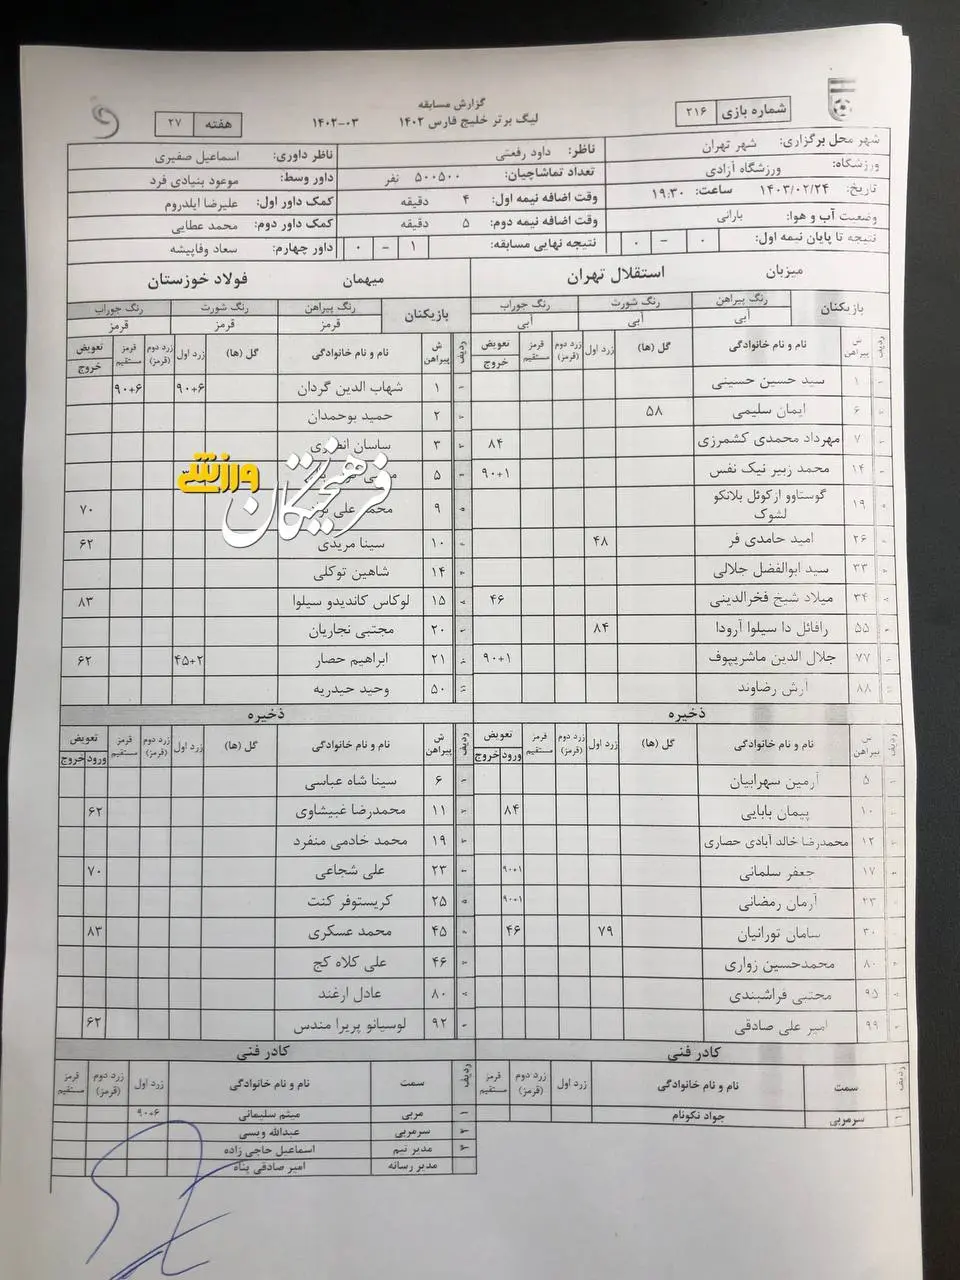 گزارش مسابقه
لیگ برتر خلیج فارس ۱۴۰۲ ۱۴۰۲-۰۳
شماره بازی ۲۱۶
هفته ۲۷
شهر محل برگزاری: شهر تهران
ناظر: داود رفعتی
ناظر داوری: اسماعیل صفیری
ورزشگاه: ورزشگاه آزادی
تعداد تماشاچیان: ۵۰۰۵۰۰ نفر
داور وسط: موعود بنیادی فرد
تاریخ: ۱۴۰۳/۰۲/۲۴ ساعت: ۱۹:۳۰
وقت اضافه نیمه اول: ۴ دقیقه
کمک داور اول: علیرضا ایلدروم
وضعیت آب و هوا: بارانی
وقت اضافه نیمه دوم: ۵ دقیقه
کمک داور دوم: محمد عطایی
نتیجه تا پایان نیمه اول: ۰ - ۰
نتیجه نهایی مسابقه: ۱ - ۰
داور چهارم: سعاد وفاپیشه
میزبان استقلال تهران
بازیکنان رنگ پیراهن رنگ شورت رنگ جوراب
آبی آبی آبی
ردیف ش پیراهن نام و نام خانوادگی گل (ها) زرد اول زرد دوم (قرمز) قرمز مستقیم تعویض خروج
۱ سید حسین حسینی
۶ ایمان سلیمی ۵۸
۷ مهرداد محمدی کشمرزی ۸۴
۱۴ محمد زبیر نیک نفس ۹۰+۱
۱۹ گوستاوو ازکوئل بلانکو لشوک
۲۶ امید حامدی فر ۴۸
۳۳ سید ابوالفضل جلالی
۳۴ میلاد شیخ فخرالدینی ۴۶
۵۵ رافائل دا سیلوا آرودا ۸۴
۷۷ جلال الدین ماشریپوف ۹۰+۱
۸۸ آرش رضاوند
ذخیره
ردیف ش پیراهن نام و نام خانوادگی گل (ها) زرد اول زرد دوم (قرمز) قرمز مستقیم تعویض ورود خروج
۵ آرمین سهرابیان
۱۰ پیمان بابایی ۸۴
۱۲ محمدرضا خالد آبادی حصاری
۱۷ جعفر سلمانی ۹۰+۱
۲۳ آرمان رمضانی ۹۰+۱
۳۰ سامان تورانیان ۷۹ ۴۶
۸۰ محمدحسین زواری
۹۵ مجتبی فراشبندی
۹۹ امیر علی صادقی
کادر فنی
ردیف سمت نام و نام خانوادگی زرد اول زرد دوم (قرمز) قرمز مستقیم
۱ سرمربی جواد نکونام
میهمان فولاد خوزستان
بازیکنان رنگ پیراهن رنگ شورت رنگ جوراب
قرمز قرمز قرمز
ردیف ش پیراهن نام و نام خانوادگی گل (ها) زرد اول زرد دوم (قرمز) قرمز مستقیم تعویض خروج
۱ شهاب الدین گردان ۹۰+۶ ۹۰+۶
۲ حمید بوحمدان
۳ ساسان
۵
۹ محمد علی ۷۰
۱۰ سینا مریدی ۶۲
۱۴ شاهین توکلی
۱۵ لوکاس کاندیدو سیلوا ۸۳
۲۰ مجتبی نجاریان
۲۱ ابراهیم حصار ۴۵+۲ ۶۲
۵۰ وحید حیدریه
ذخیره
ردیف ش پیراهن نام و نام خانوادگی گل (ها) زرد اول زرد دوم (قرمز) قرمز مستقیم تعویض ورود خروج
۶ سینا شاه عباسی
۱۱ محمدرضا غبیشاوی ۶۲
۱۹ محمد خادمی منفرد
۲۳ علی شجاعی ۷۰
۲۵ کریستوفر کنت
۴۵ محمد عسکری ۸۳
۴۶ علی کلاه کج
۸۰ عادل ارغند
۹۲ لوسیانو پریرا مندس ۶۲
کادر فنی
ردیف سمت نام و نام خانوادگی زرد اول زرد دوم (قرمز) قرمز مستقیم
۱ مربی میثم سلیمانی ۹۰+۶
۲ سرمربی عبدالله ویسی
۳ مدیر تیم اسماعیل حاجی زاده
مدیر رسانه امیر صادقی پناه
فرهیختگان ورزشی